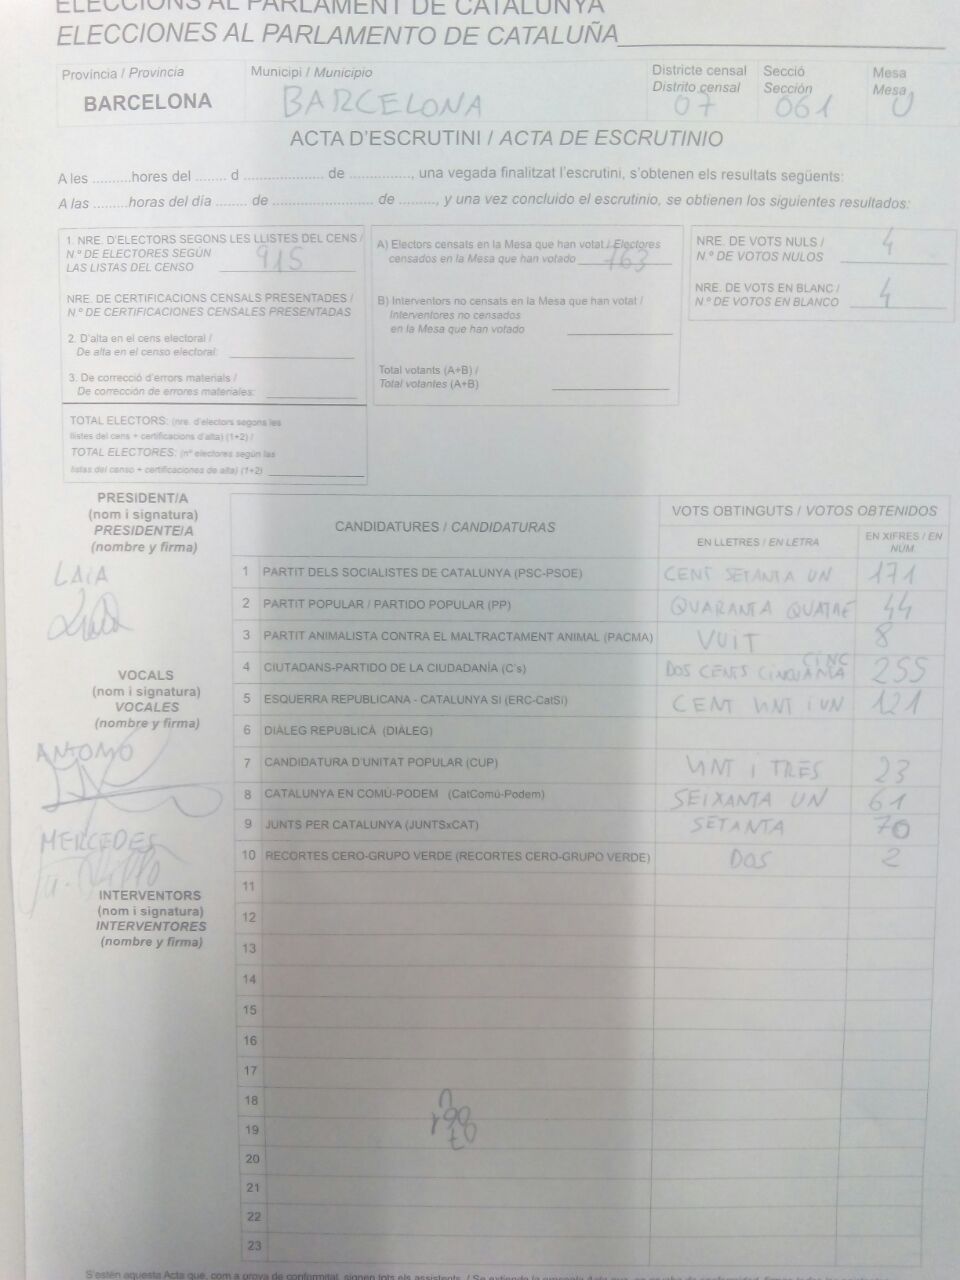 ELECCIONS AL PARLAMENT DE CATALUNYA
ELECCIONES AL PARLAMENTO DE CATALUÑA
Província / Provincia
BARCELONA
Municipi / Municipio
BARCELONA
Districte censal
Distrito censal
07
Secció
Sección
061
Mesa
Mesa
U
ACTA D'ESCRUTINI / ACTA DE ESCRUTINIO
A les ..........hores del ........ d .................... de ..............., una vegada finalitzat l'escrutini, s'obtenen els resultats següents:
A las .........horas del día ........ de ......................... de ........., y una vez concluido el escrutinio, se obtienen los siguientes resultados:
1. NRE. D'ELECTORS SEGONS LES LLISTES DEL CENS /
N.º DE ELECTORES SEGÚN
LAS LISTAS DEL CENSO 915
NRE. DE CERTIFICACIONS CENSALS PRESENTADES /
N.º DE CERTIFICACIONES CENSALES PRESENTADAS
2. D'alta en el cens electoral /
De alta en el censo electoral:
3. De correcció d'errors materials /
De corrección de errores materiales:
TOTAL ELECTORS: (nre. d'electors segons les
llistes del cens + certificacions d'alta) (1+2) /
TOTAL ELECTORES: (nº electores según las
listas del censo + certificaciones de alta) (1+2)
A) Electors censats en la Mesa que han votat / Electores
censados en la Mesa que han votado 763
B) Interventors no censats en la Mesa que han votat /
Interventores no censados
en la Mesa que han votado
Total votants (A+B) /
Total votantes (A+B)
NRE. DE VOTS NULS /
N.º DE VOTOS NULOS 4
NRE. DE VOTS EN BLANC /
N.º DE VOTOS EN BLANCO 4
PRESIDENT/A
(nom i signatura)
PRESIDENTE/A
(nombre y firma)
LAIA
VOCALS
(nom i signatura)
VOCALES
(nombre y firma)
ANTONIO
MERCEDES
INTERVENTORS
(nom i signatura)
INTERVENTORES
(nombre y firma)
CANDIDATURES / CANDIDATURAS
VOTS OBTINGUTS / VOTOS OBTENIDOS
EN LLETRES / EN LETRA
EN XIFRES / EN
NUM
1 PARTIT DELS SOCIALISTES DE CATALUNYA (PSC-PSOE) CENT SETANTA UN 171
2 PARTIT POPULAR / PARTIDO POPULAR (PP) QUARANTA QUATRE 44
3 PARTIT ANIMALISTA CONTRA EL MALTRACTAMENT ANIMAL (PACMA) VUIT 8
4 CIUTADANS-PARTIDO DE LA CIUDADANÍA (C's) DOS CENTS CINQUANTA CINC 255
5 ESQUERRA REPUBLICANA - CATALUNYA SÍ (ERC-CatSí) CENT VINT I UN 121
6 DIÀLEG REPUBLICÀ (DIÀLEG)
7 CANDIDATURA D'UNITAT POPULAR (CUP) VINT I TRES 23
8 CATALUNYA EN COMÚ-PODEM (CatComú-Podem) SEIXANTA UN 61
9 JUNTS PER CATALUNYA (JUNTSxCAT) SETANTA 70
10 RECORTES CERO-GRUPO VERDE (RECORTES CERO-GRUPO VERDE) DOS 2
11
12
13
14
15
16
17
18
19
20
21
22
23
07
061
U
S'estén aquesta Acta que, com a prova de conformitat, signen tots els assistents. /